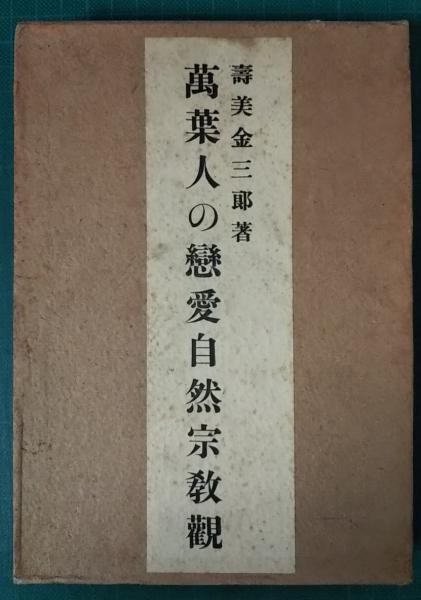 壽美金三郞著
萬葉人の戀愛自然宗敎觀